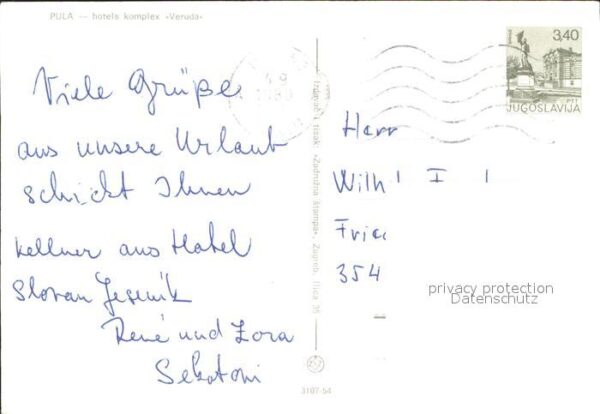 PULA — hotels komplex »Veruda«
Viele Grüße
aus unsere Urlaub
schickt Ihnen
kellner aus Hotel
Slovan Jesenik
René und Zora
Sekotoni
Izdavač i tisak »Zadružna štampa« Zagreb, Ilica 35
3107-54
3,40
PTT
JUGOSLAVIJA
Herr
Wilh I I
Frie
354
privacy protection
Datenschutz